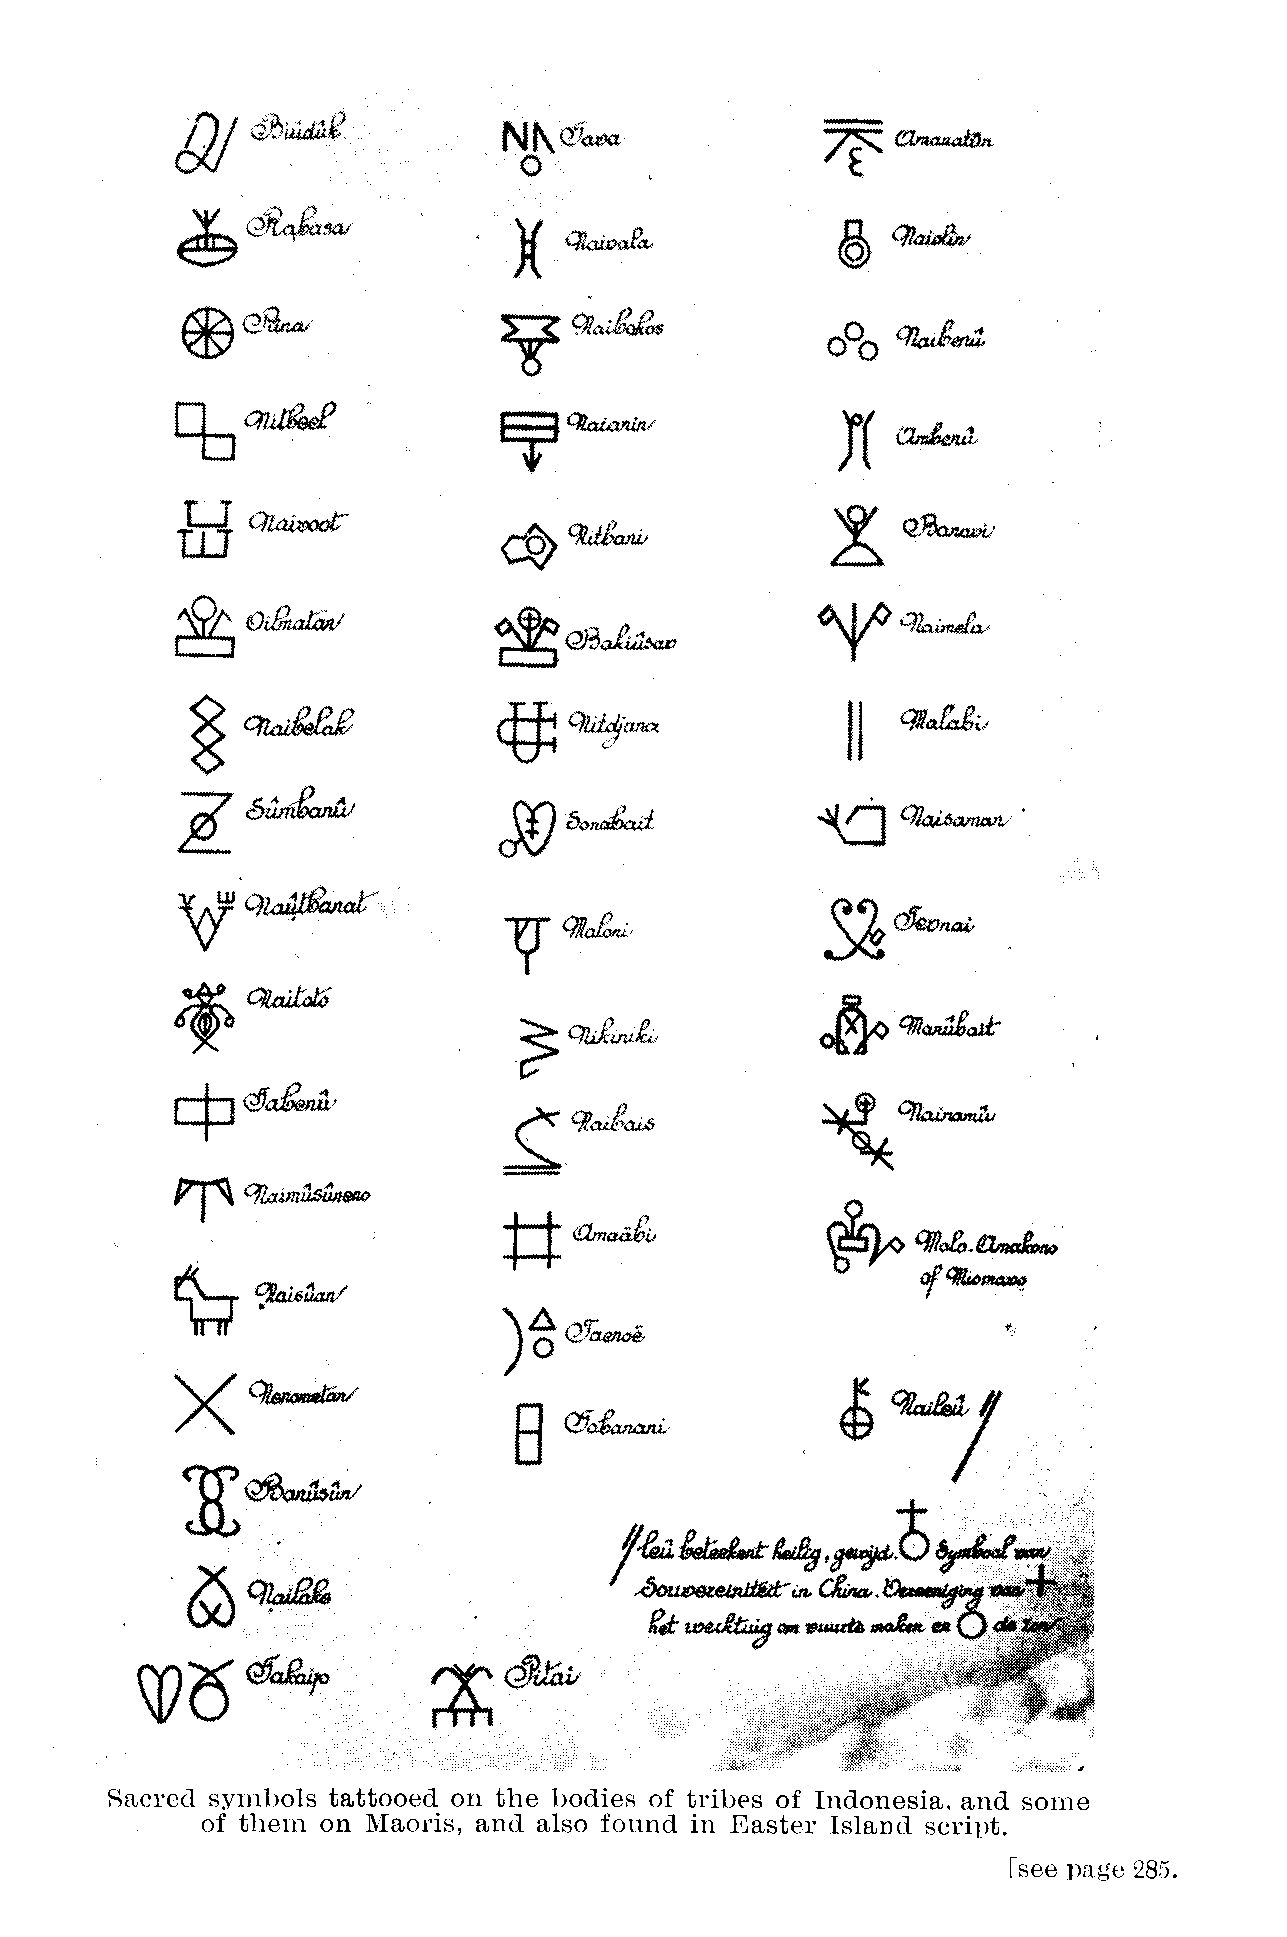 Biïdûk
Rabasa
Rina
Nitbeel
Naiwoot
Oilmatan
Naibelak
Sûmbanû
Naûtbanat
Naitoto
Tabenû
Naimûsûneno
Naisûan
Nenometan
Banûsûn
Nailake
Takaip
Tava
Naivala
Naibokos
Naianin
Nitbani
Bakiûsav
Nitdjana
Sonabait
Maloni
Nikiniki
Naibais
Amaäbi
Taenoë
Tobanani
Pitai
Amanatûn
Naiolin
Naibenû
Ambenû
Banavi
Naimela
Malabi
Naisaman
Tevnai
Manûbait
Nainamû
Molo-Anakono
of Miomavo
Naileû //
// leû beteekent heilig, gewijd. Symbool van
Souvereiniteit in China. Vereeniging van
het werktuig om vuur te maken en de zon
Sacred symbols tattooed on the bodies of tribes of Indonesia, and some
of them on Maoris, and also found in Easter Island script.
[see page 285.